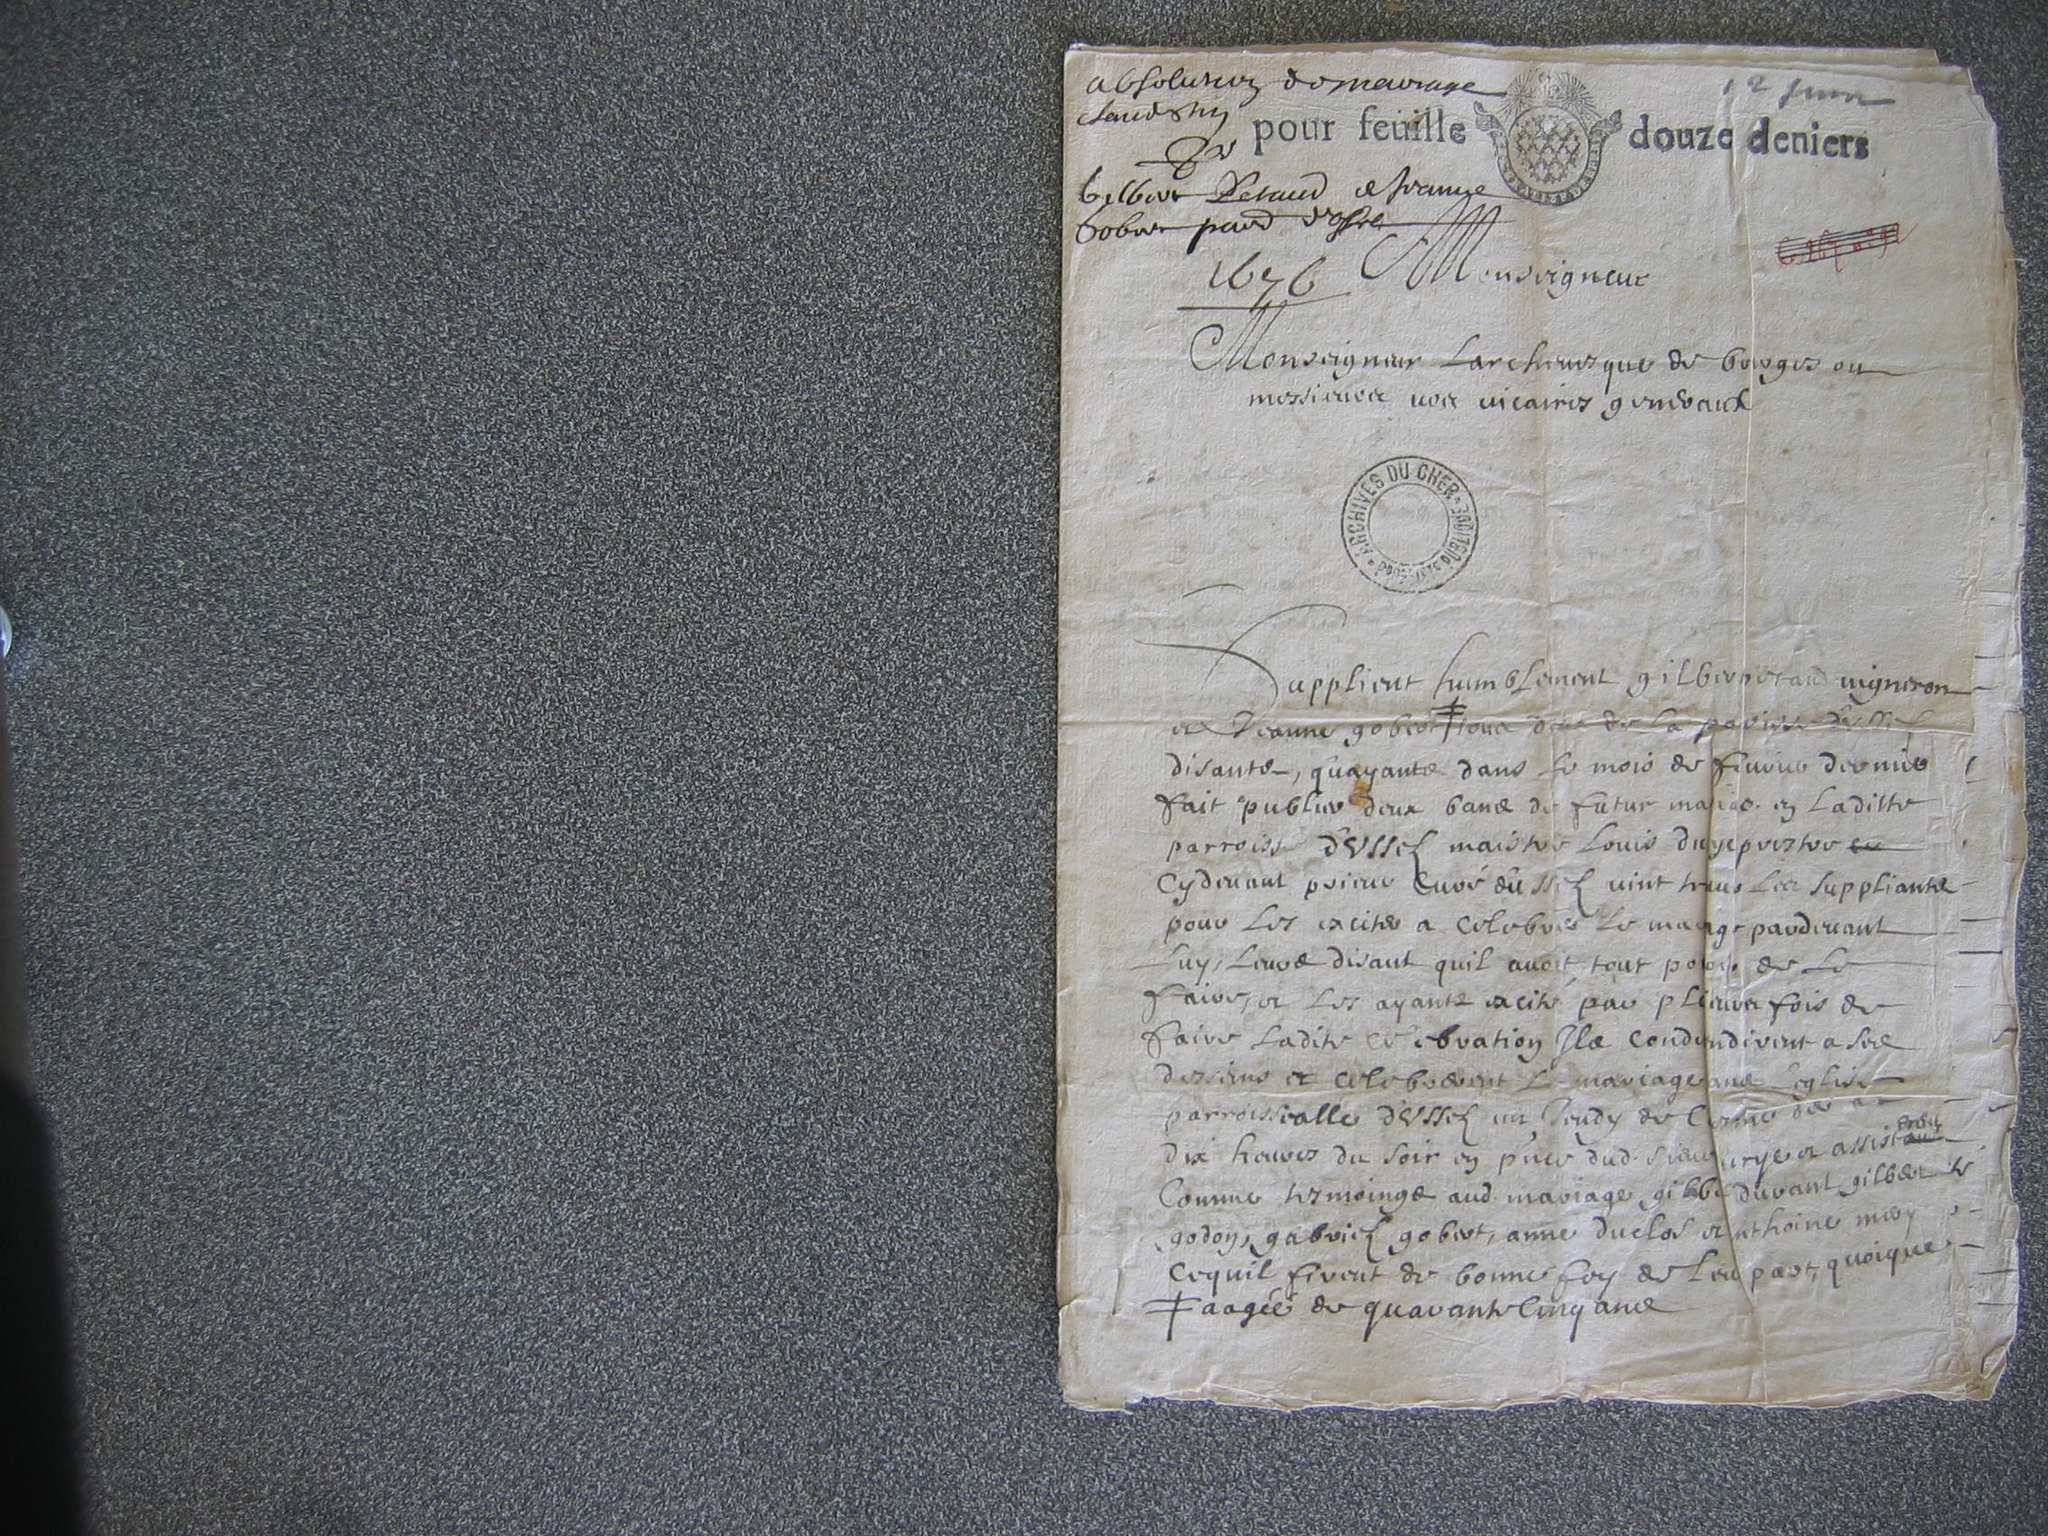 absolution de mariage
clandestin
12 Juin
pour feuille douze deniers
De
Gilbert Peraud et Jeanne
Gobert par d'Ussel
1676 Monseigneur
Monseigneur Larchevesque de bourges ou
messieurs vos vicaires generaux
ARCHIVES DU CHER
Supplient humblement gilbert peraud vigneron
et Jeanne gobert ǂ tous deux de La paroisse dussel
disants, quayants dans le mois de feurier dernier
fait publier deux bans de futur mariage en Laditte
parroisse d'Ussel maistre Louis duye prestre
cydeuant prieur Curé dussel uint trouuer Les suppliants
pour Les exciter a celebrer le mariage pardeuant
Luy, Leurs disant quil auoit tout pouuoir de Le
faire, et Les ayants excité par plieurs fois de
faire Ladite celebration Ils condendirent a ses
desseins et celebrerent Le mariage dans Leglise
parroissialle d'Ussel un Jeudy de
dix heures du soir en pnce dud. sieur et assist
Comme tesmoings aud. mariage gilbert durant gilbert
godon, gabriel gobert, anne duclos et anthoine
Cequil firent de bonne foy de Leur part, quoique
ǂ aagée de quarante Cinq ans